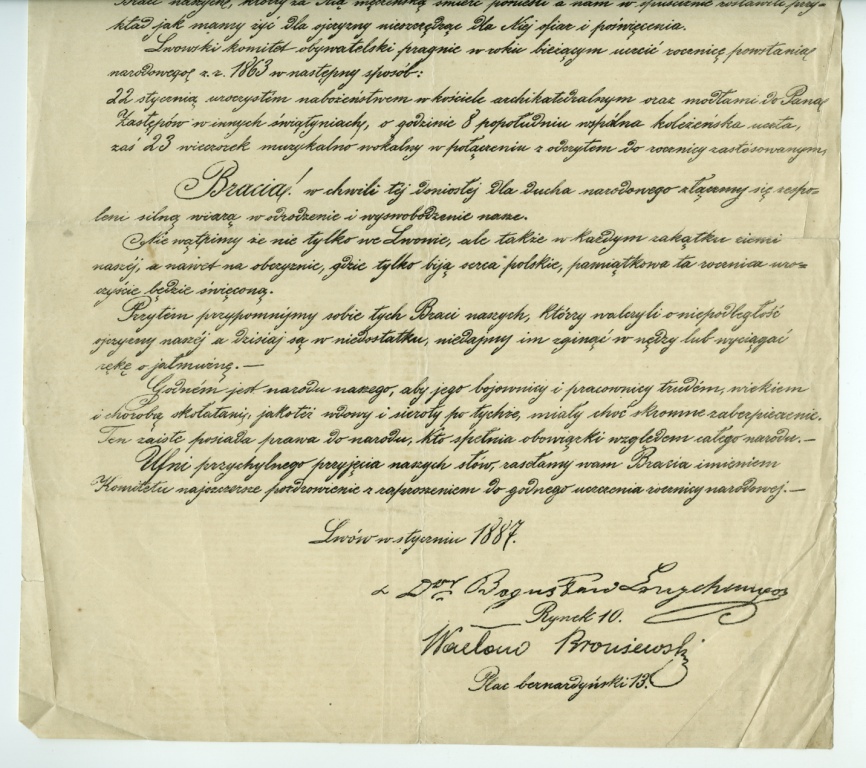 Braci naszych, którzy za Nią męczeńską śmierć ponieśli a nam w spuściznie zostawili przy-
kład jak mamy żyć dla ojczyzny nieszczędząc dla Niej ofiar i poświęcenia.
Lwowski komitet obywatelski pragnie w roku bieżącym uczcić rocznicę powstania
narodowego z r. 1863 w następny sposób:
22 stycznia uroczystém nabożeństwem w kościele archikatedralnym oraz modłami do Pana
Zastępów w innych świątyniach, o godzinie 8 popołudniu wspólna koleżeńska uczta,
zaś 23 wieczorek muzykalno wokalny w połączeniu z odczytem do rocznicy zastósowanym,
Bracia! w chwili téj doniosłej dla ducha narodowego złączmy się zespo-
leni silną wiarą w odrodzenie i wyswobodzenie nasze.
Nie wątpimy że nie tylko we Lwowie, ale także w każdym zakątku ziemi
naszéj, a nawet na obczyznie, gdzie tylko biją serca polskie, pamiątkowa ta rocznica uro-
czyście będzie święconą.
Przytém przypomnijmy sobie tych Braci naszych, którzy walczyli o niepodległość
ojczyzny naszéj a dzisiaj są w niedostatku, niedajmy im zginąć w nędzy lub wyciągać
rękę o jałmużnę. —
Godném jest narodu naszego, aby jego bojownicy i pracownicy trudem, wiekiem
i chorobą skołatani, jakoteż wdowy i sieroty po tychże, miały choć skromne zabezpieczenie.
Ten zaiste posiada prawa do narodu, kto spełnia obowiązki względem całego narodu. —
Ufni przychylnego przyjęcia naszych słów, zasełamy wam Bracia imieniem
Komitetu najszczersze pozdrowienie z zaproszeniem do godnego uczczenia rocznicy narodowej. —
Lwów w styczniu 1887.
Dor Bogusław
Rynek 10.
Wacław
Plac bernardyński 13.